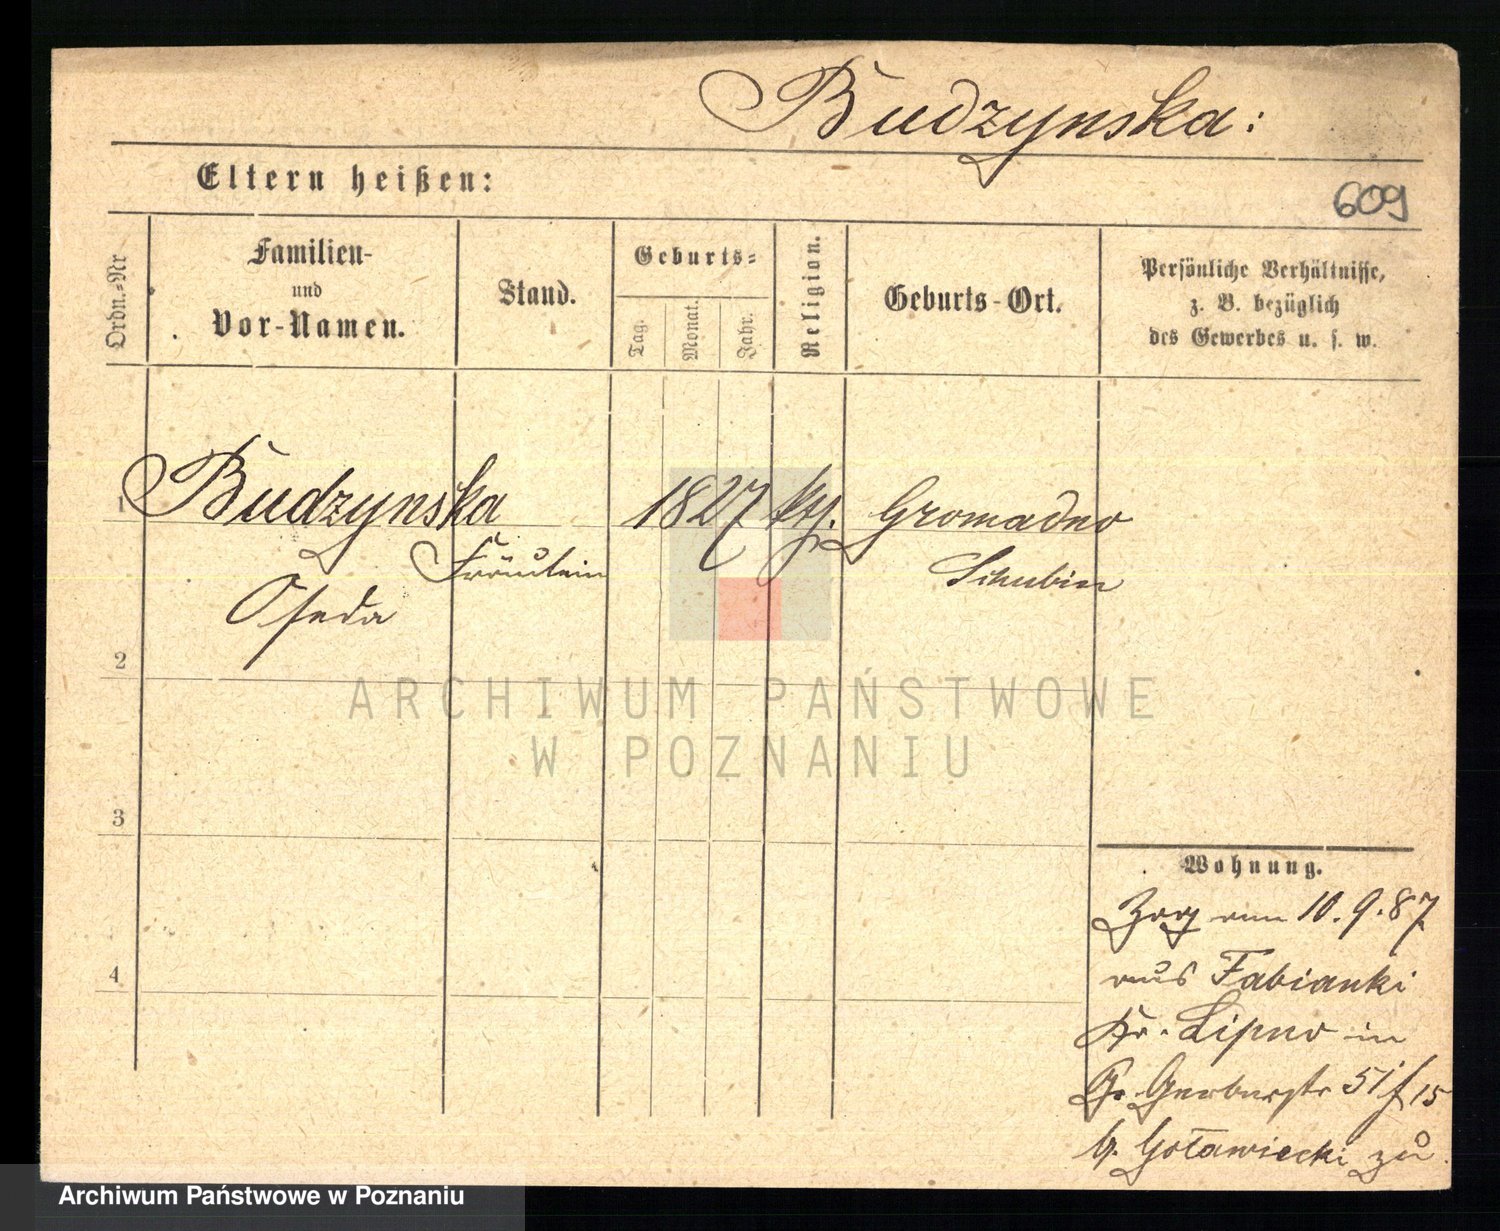 Budzynska:
Eltern heißen:
609
Ordn.-Nr
Familien-
und
Vor-Namen.
Stand.
Geburts-
Tag.
Monat.
Jahr.
Religion.
Geburts-Ort.
Persönliche Verhältnisse,
z. B. bezüglich
des Gewerbes u. s. w.
1
Budzynska
1827
kth.
Gromadno
Fräulein
Schubin
2
ARCHIWUM PAŃSTWOWE
W POZNANIU
3
4
Wohnung.
Zog am 10.9.87
aus Fabianki
Kr. Lipno in
Gr. Gerberstr 51 f 15
b. Gotawiecki zu
Archiwum Państwowe w Poznaniu